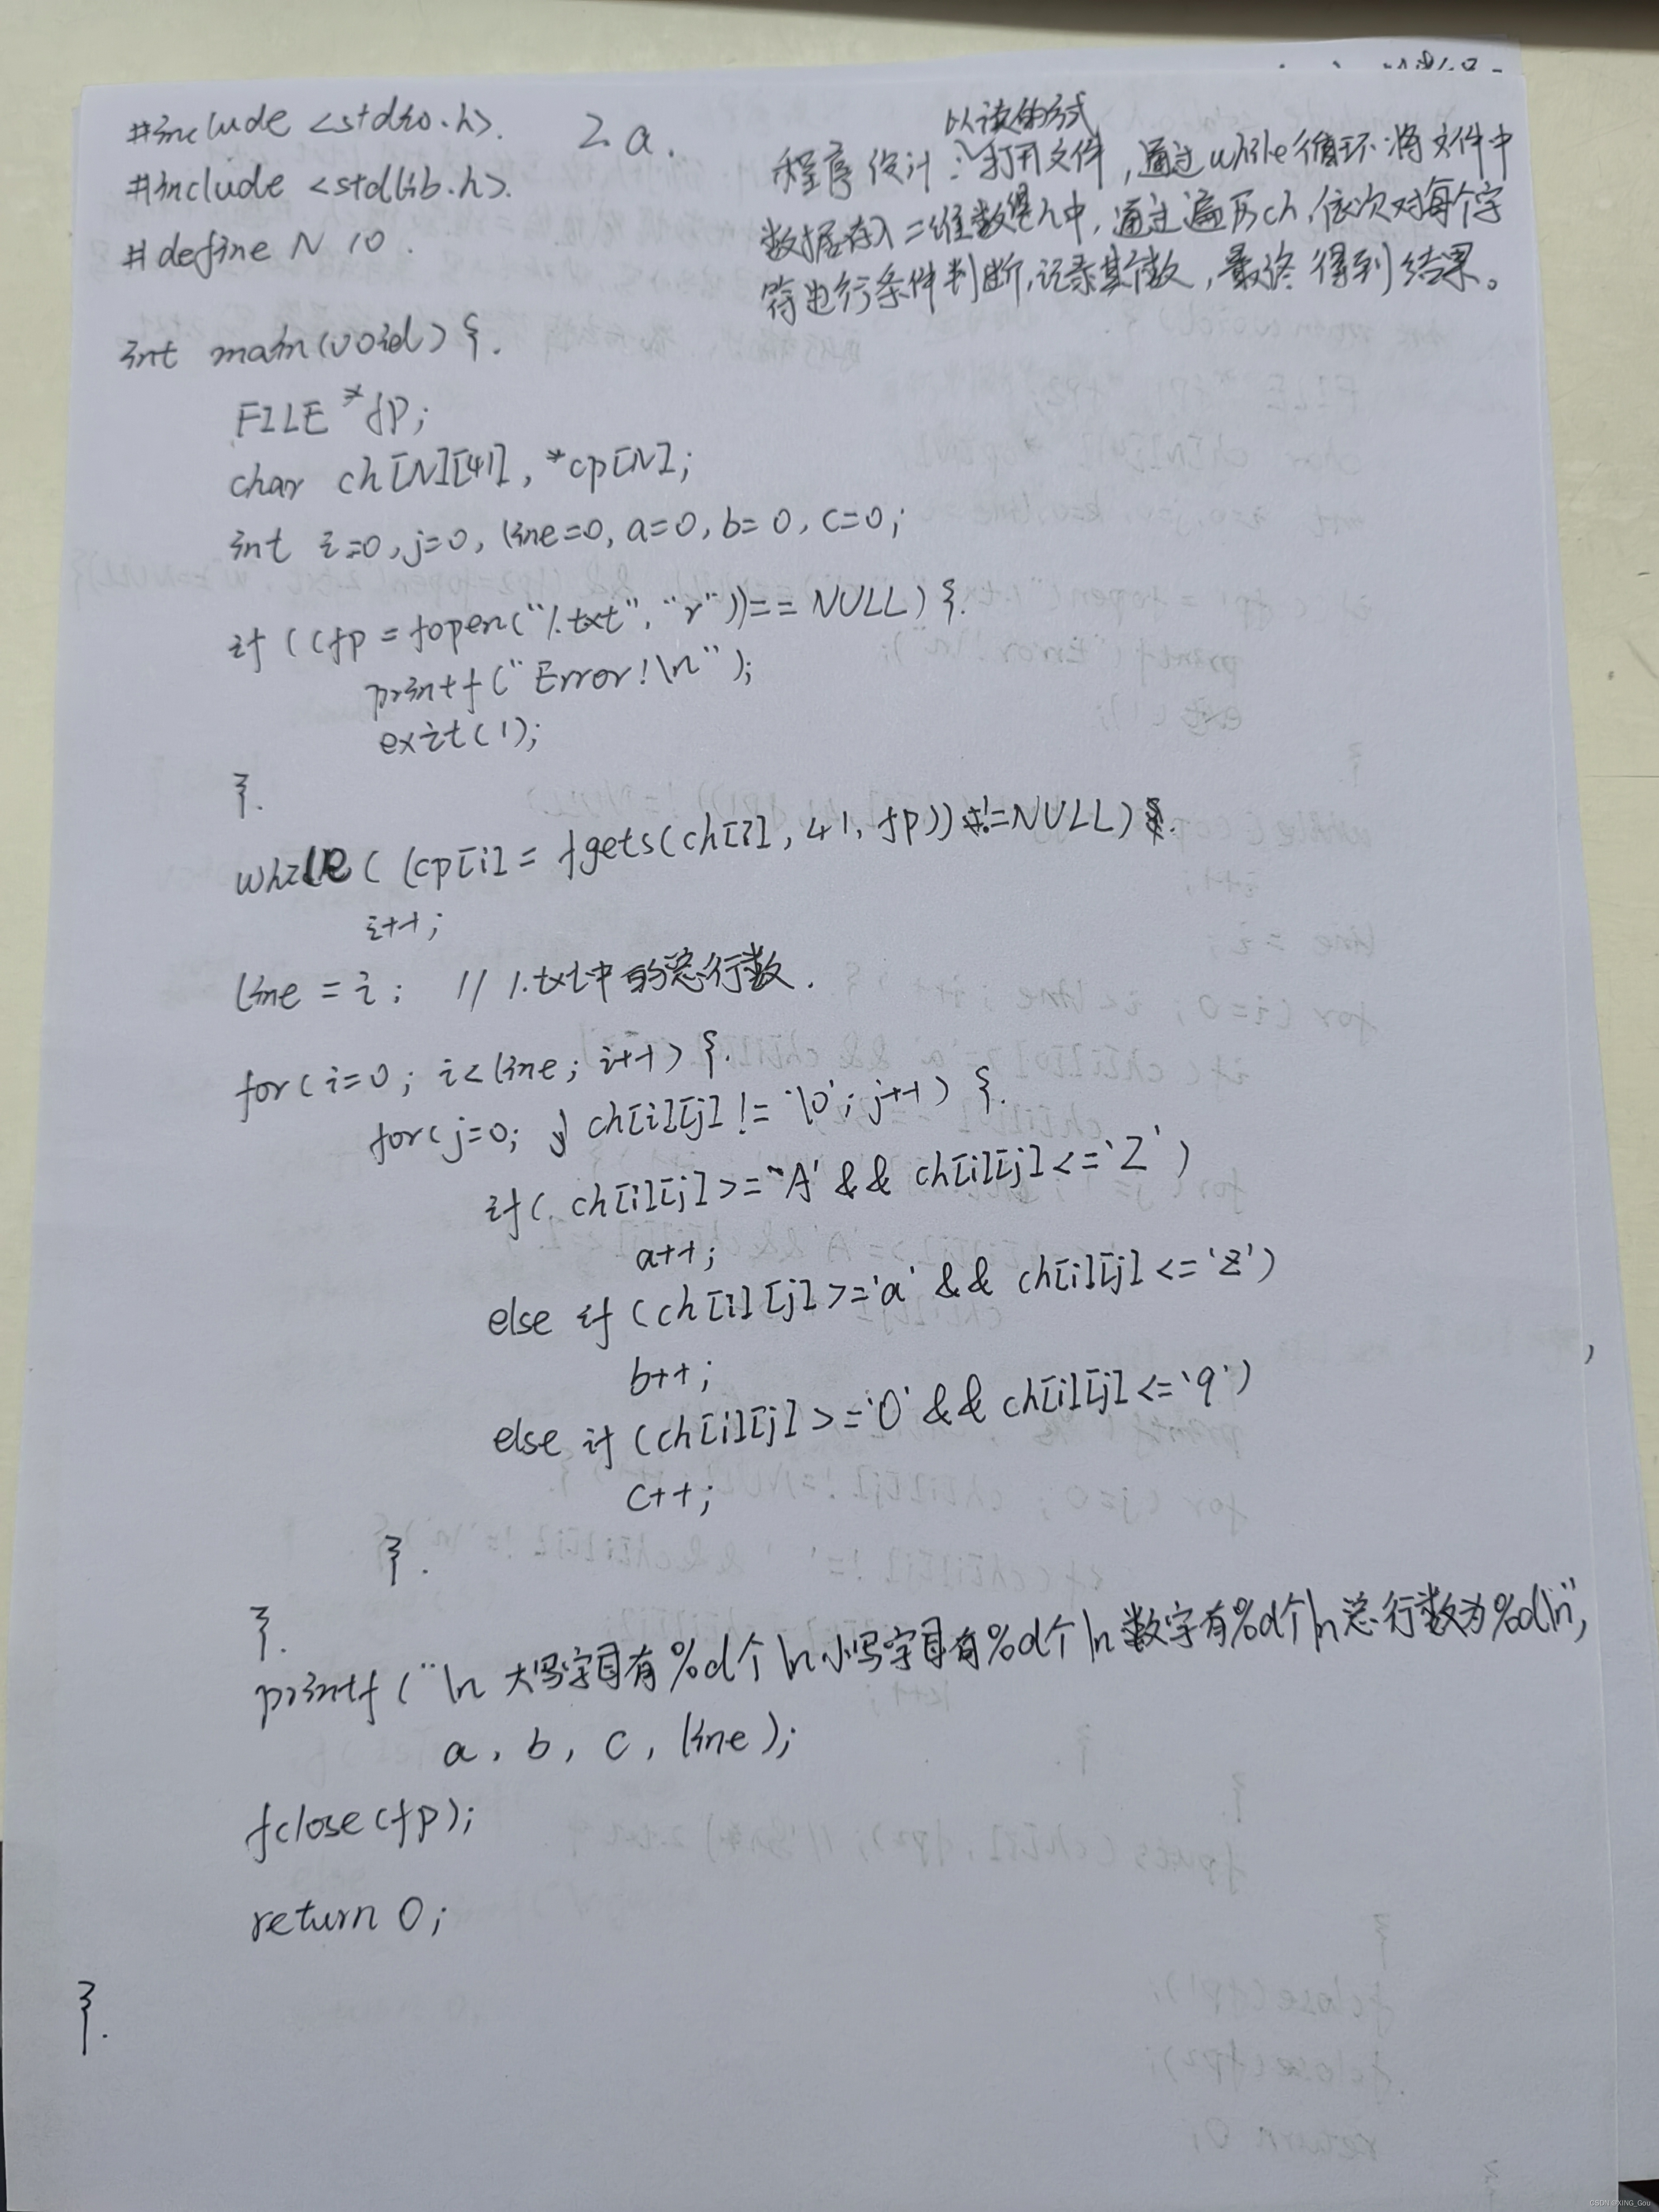 #include <stdio.h>.
2.a.
#include <stdlib.h>.
#define N 10.
以读的方式
程序设计:打开文件,通过while循环将文件中
数据存入二维数组ch中,通过遍历ch,依次对每个字
符进行条件判断,记录其个数,最终得到结果。
int main(void) {.
FILE *fp;
char ch[N][41], *cp[N];
int i=0, j=0, line=0, a=0, b=0, c=0;
if ((fp = fopen("1.txt", "r"))== NULL) {.
printf("Error!\n");
exit(1);
}.
while ( (cp[i] = fgets(ch[i], 41, fp)) !=NULL)
i++;
line = i; // 1.txt中的总行数.
for( i=0; i<line; i++) {.
for(j=0; ch[i][j] != '\0'; j++) {.
if( ch[i][j] >= 'A' && ch[i][j] <= 'Z' )
a++;
else if (ch[i][j] >='a' && ch[i][j] <= 'z')
b++;
else if (ch[i][j] >='0' && ch[i][j] <= '9')
c++;
}.
}.
printf ("\n 大写字母有%d个\n小写字母有%d个\n数字有%d个\n总行数为%d\n",
a, b, c, line);
fclose(fp);
return 0;
}.
CSDN @XING_Gou